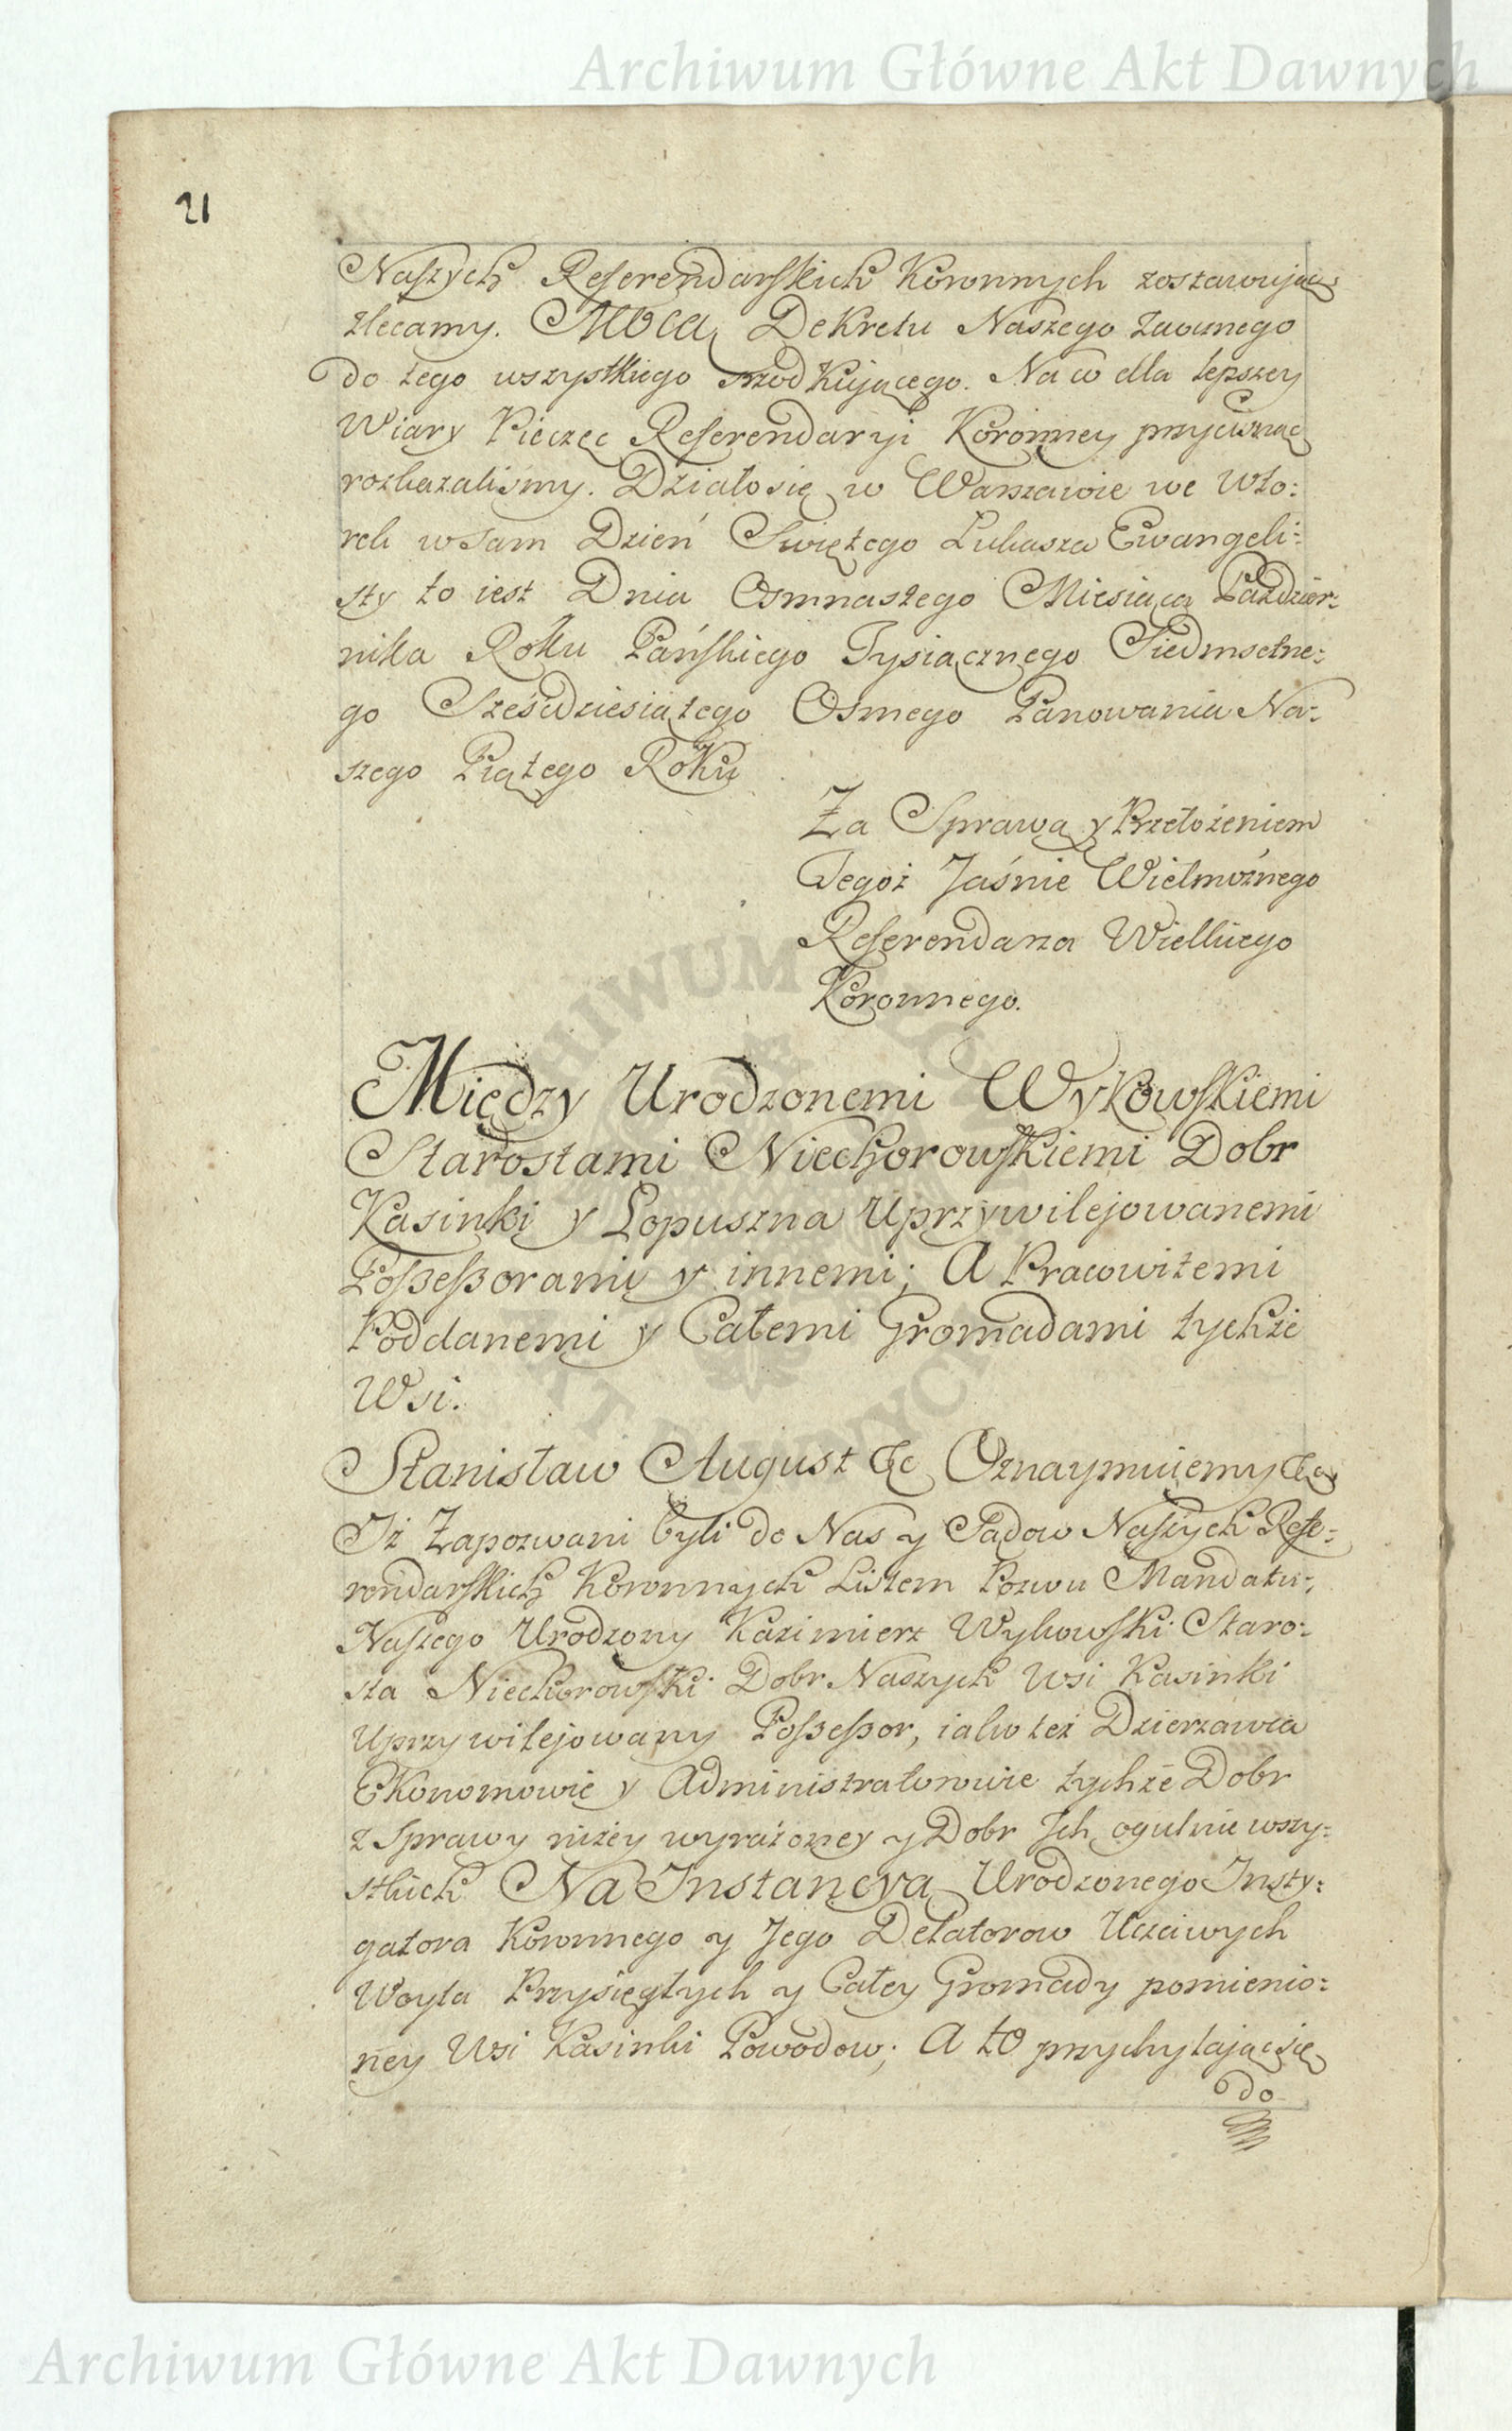 Archiwum Główne Akt Dawnych
21
Naszych Referendarskich Koronnych zostawując
zlecamy. Mocą Dekretu Naszego Zaocznego
do tego wszystkiego srzodkującego. Na co dla lepszey
Wiary Pieczęć Referendaryi Koronney przycisnąć
rozkazaliśmy. Działo się w Warszawie we Wto:
rek w sam Dzień Swiętego Łukasza Ewangeli:
sty to iest Dnia Osmnastego Miesiąca Pazdzier:
nika Roku Pańskiego Tysiącznego Siedmsetne:
go Sześcdziesiątego Osmego Panowania Na:
szego Piątego Roku
Za Sprawą y Przełożeniem
Tegoż Jaśnie Wielmożnego
Referendarza Wielkiego
Koronnego.
Między Urodzonemi Wykowskiemi
Starostami Niechorowskiemi Dobr
Kasinki y Łopuszna Uprzywilejowanemi
Possessorami y innemi; A Pracowitemi
Poddanemi y Całemi Gromadami tychże
Wsi.
Stanisław August &c Oznaymuiemy &c
Iż Zapozwani byli do Nas y Sądow Naszych Refe:
rendarskich Koronnych Listem Pozwu Mandatu:
Naszego Urodzony Kazimierz Wykowski Staro:
sta Niechorowski Dobr Naszych Wsi Kasinki
Uprzywilejowany Possessor, iako też Dzierzawca
Ekonomowie y Administratorowie tychże Dobr
z Sprawy niżey wyrażoney y Dobr Ich ogulnie wszy:
stkich Na Instancyą Urodzonego Insty:
gatora Koronnego y Jego Delatorow Uczciwych
Woyta Przysięgłych y Całey Gromady pomienio:
ney Wsi Kasinki Powodow; A to przychylając się
do
Archiwum Główne Akt Dawnych